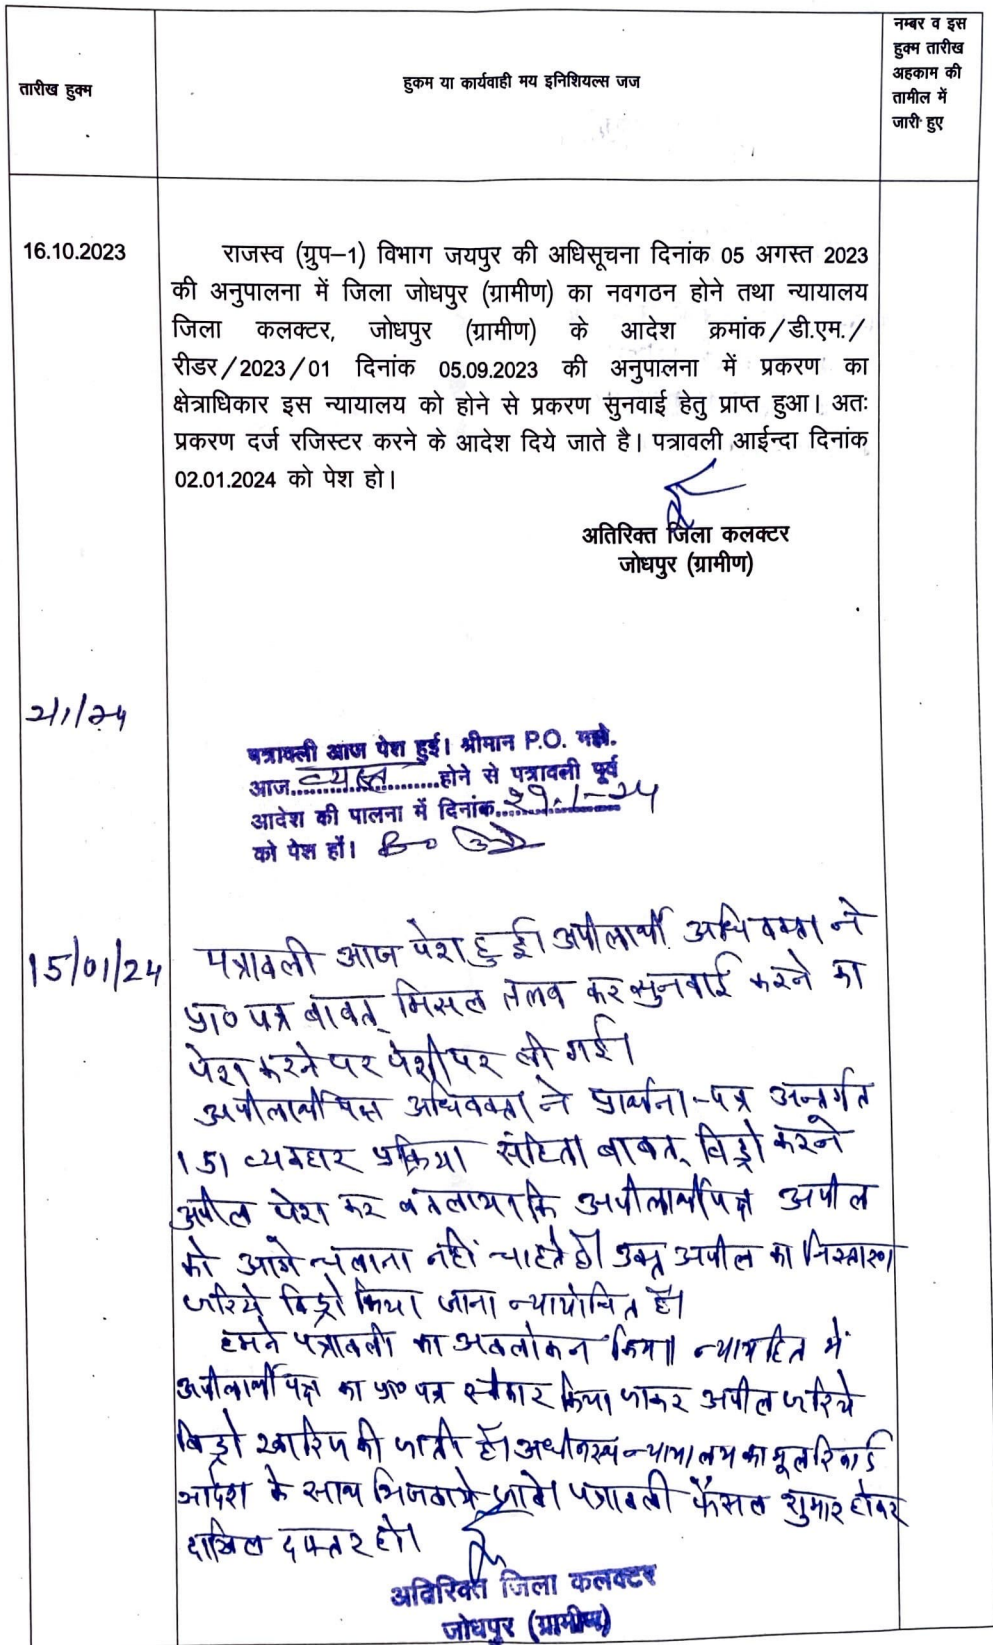 तारीख हुक्म
हुकम या कार्यवाही मय इनिशियल्स जज
नम्बर व इस
हुक्म तारीख
अहकाम की
तामील में
जारी हुए
16.10.2023
राजस्व (ग्रुप–1) विभाग जयपुर की अधिसूचना दिनांक 05 अगस्त 2023
की अनुपालना में जिला जोधपुर (ग्रामीण) का नवगठन होने तथा न्यायालय
जिला कलक्टर, जोधपुर (ग्रामीण) के आदेश क्रमांक/डी.एम./
रीडर/2023/01 दिनांक 05.09.2023 की अनुपालना में प्रकरण का
क्षेत्राधिकार इस न्यायालय को होने से प्रकरण सुनवाई हेतु प्राप्त हुआ। अतः
प्रकरण दर्ज रजिस्टर करने के आदेश दिये जाते है। पत्रावली आईन्दा दिनांक
02.01.2024 को पेश हो।
अतिरिक्त जिला कलक्टर
जोधपुर (ग्रामीण)
2/1/24
पत्रावली आज पेश हुई। श्रीमान P.O. महो.
आज व्यस्त होने से पत्रावली पूर्व
आदेश की पालना में दिनांक 29-1-24
को पेश हों।
15/01/24
पत्रावली आज पेश हुई। अपीलार्थी अधिवक्ता ने
प्रा० पत्र बाबत् मिसल तलब कर सुनवाई करने का
पेश करने पर पेशी पर ली गई।
अपीलार्थीपक्ष अधिवक्ता ने प्रार्थना-पत्र अन्तर्गत
151 व्यवहार प्रक्रिया संहिता बाबत् विड्रो करने
अपील पेश कर बतलाया कि अपीलार्थीपक्ष अपील
को आगे चलाना नहीं चाहते है। उक्त अपील का निस्तारण
जरिये विड्रो किया जाना न्यायोचित है।
हमने पत्रावली का अवलोकन किया। न्यायहित में
अपीलार्थी पक्ष का प्रा० पत्र स्वीकार किया जाकर अपील जरिये
विड्रो खारिज की जाती है। अधीनस्थ न्यायालय का मूल रिकार्ड
आदेश के साथ भिजवाये जावे। पत्रावली फैसल शुमार होकर
दाखिल दफ्तर हो।
अतिरिक्त जिला कलक्टर
जोधपुर (ग्रामीण)